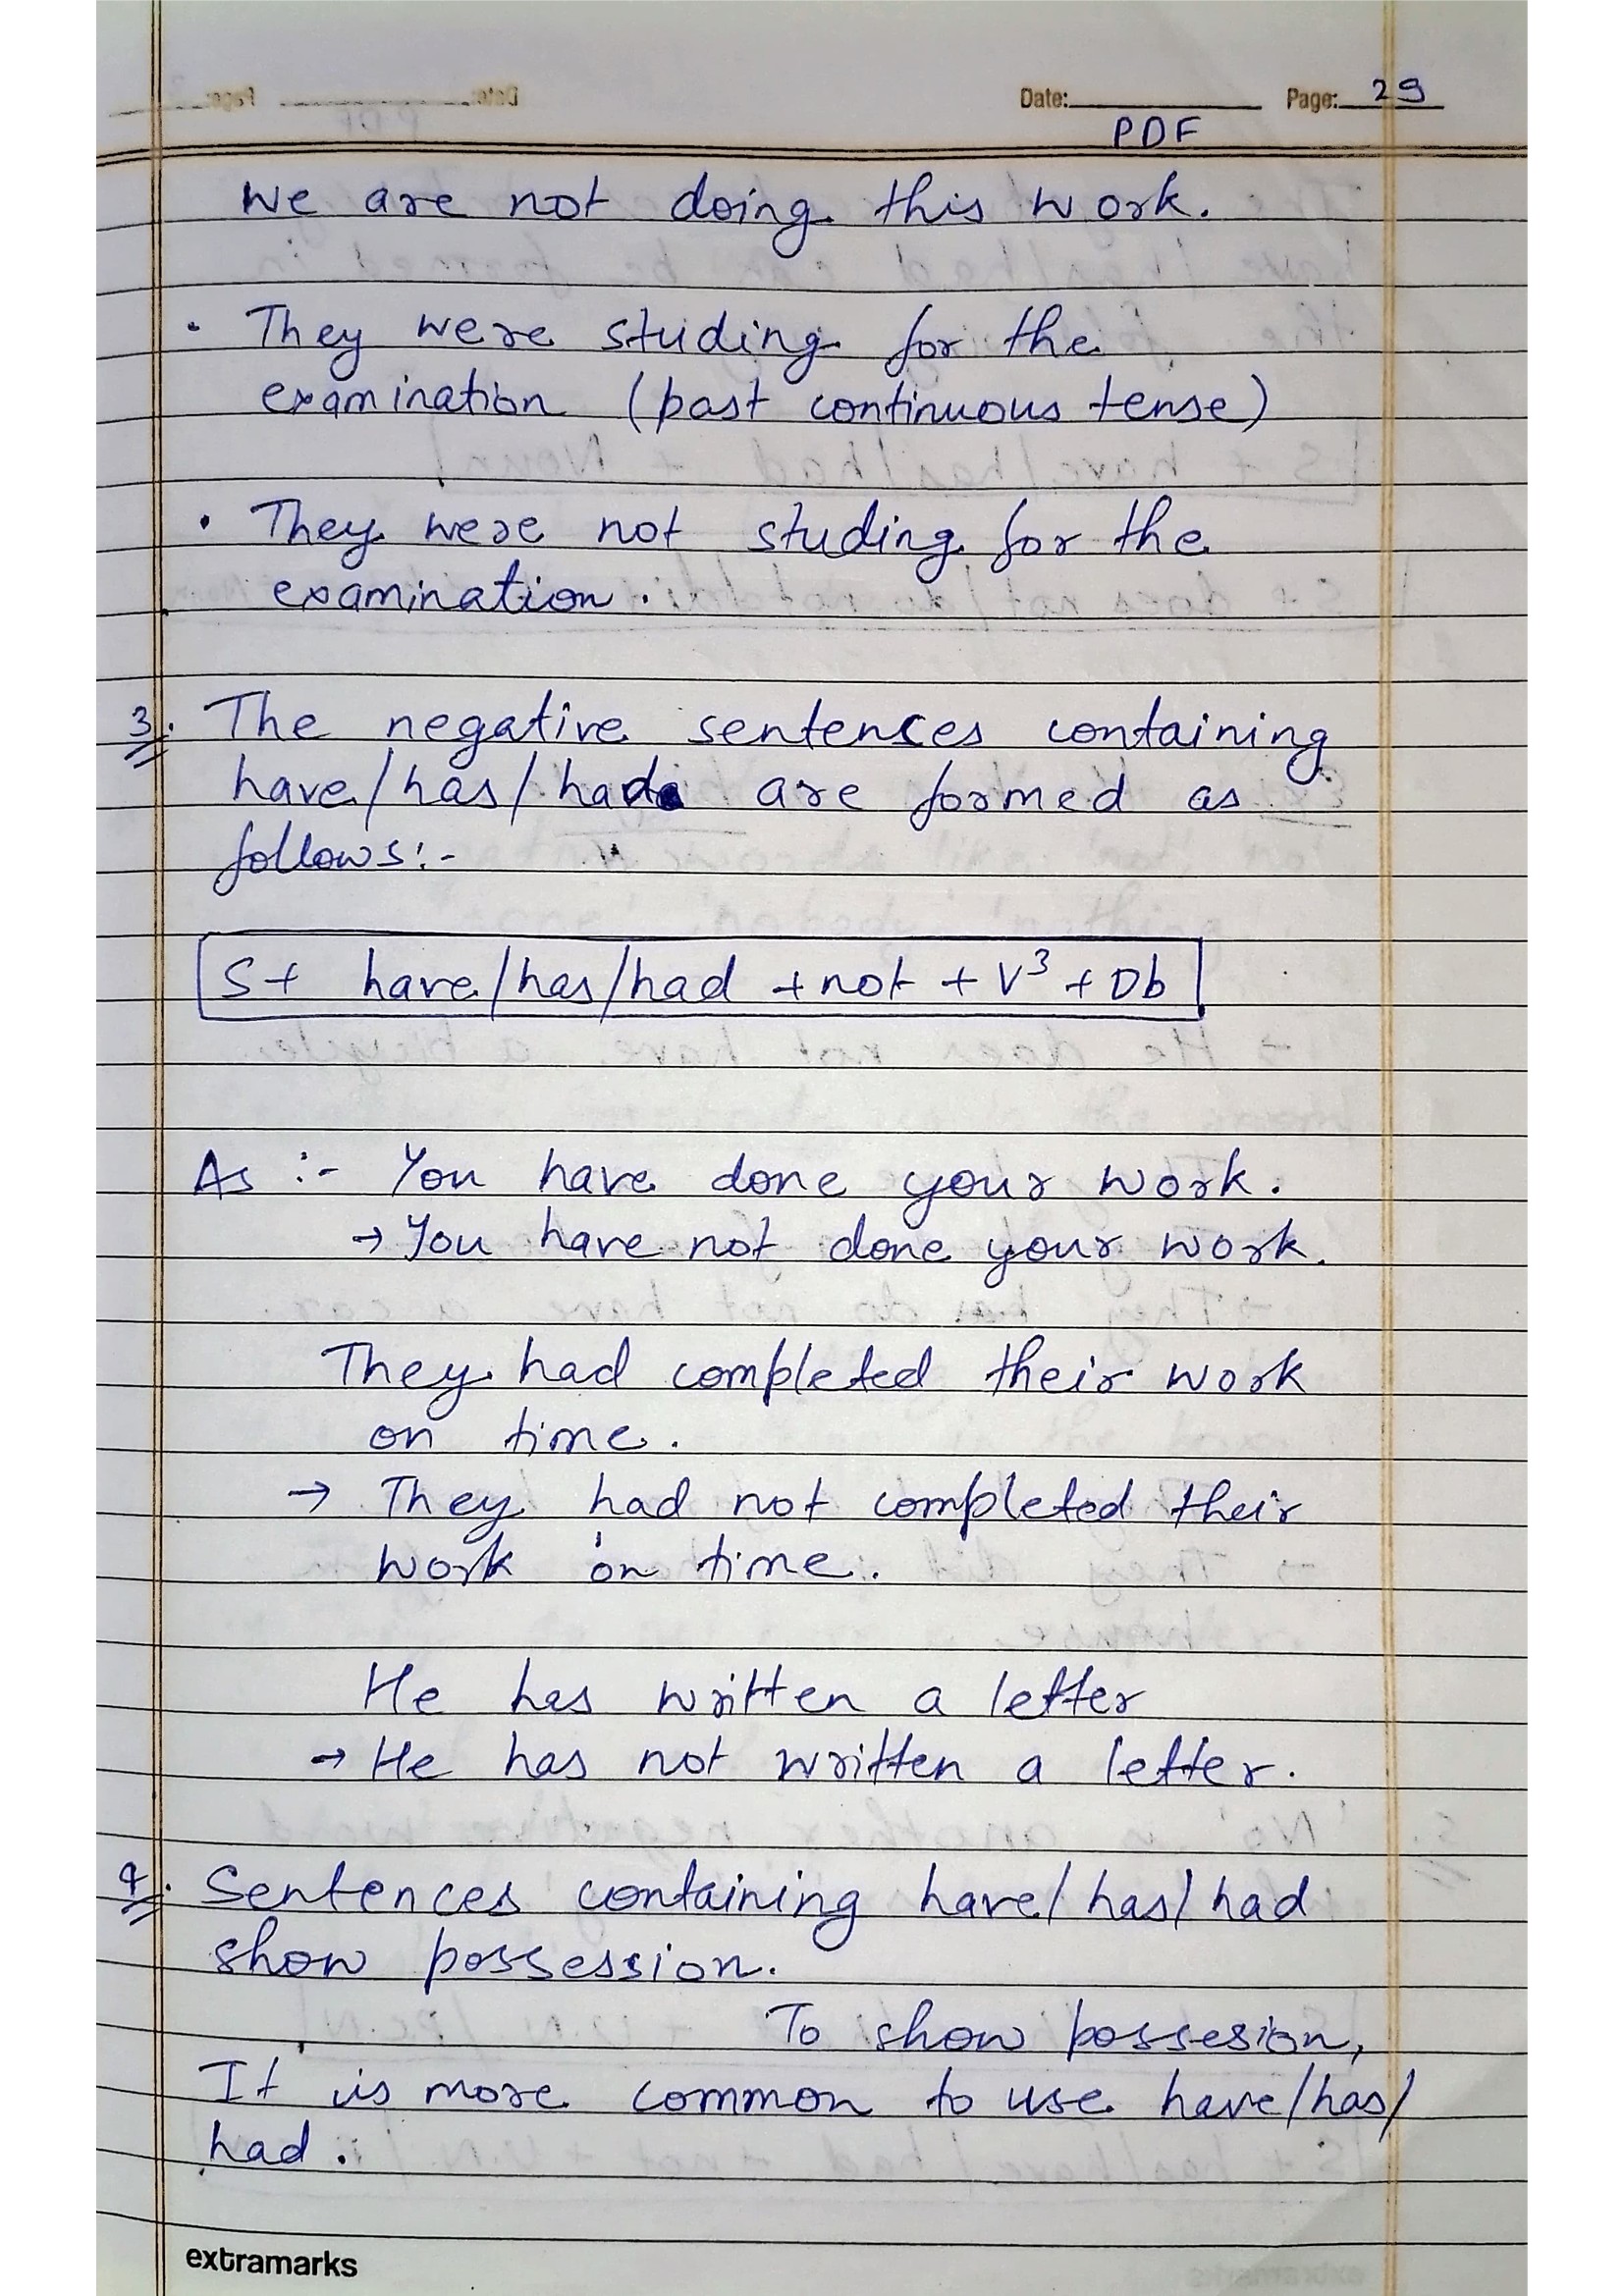 Date: Page: 29
PDF
We are not doing this work.
• They were studing for the
examination (past continuous tense)
• They were not studing for the
examination.
3. The negative sentences containing
have/has/had are formed as
follows:-
S+ have/has/had +not + V³ + Ob
As :- You have done your work.
→ You have not done your work.
They had completed their work
on time.
→ They had not completed their
work on time.
He has written a letter
→ He has not written a letter.
4. Sentences containing have/has/had
show possession.
To show possesion,
It is more common to use have/has/
had.
extramarks